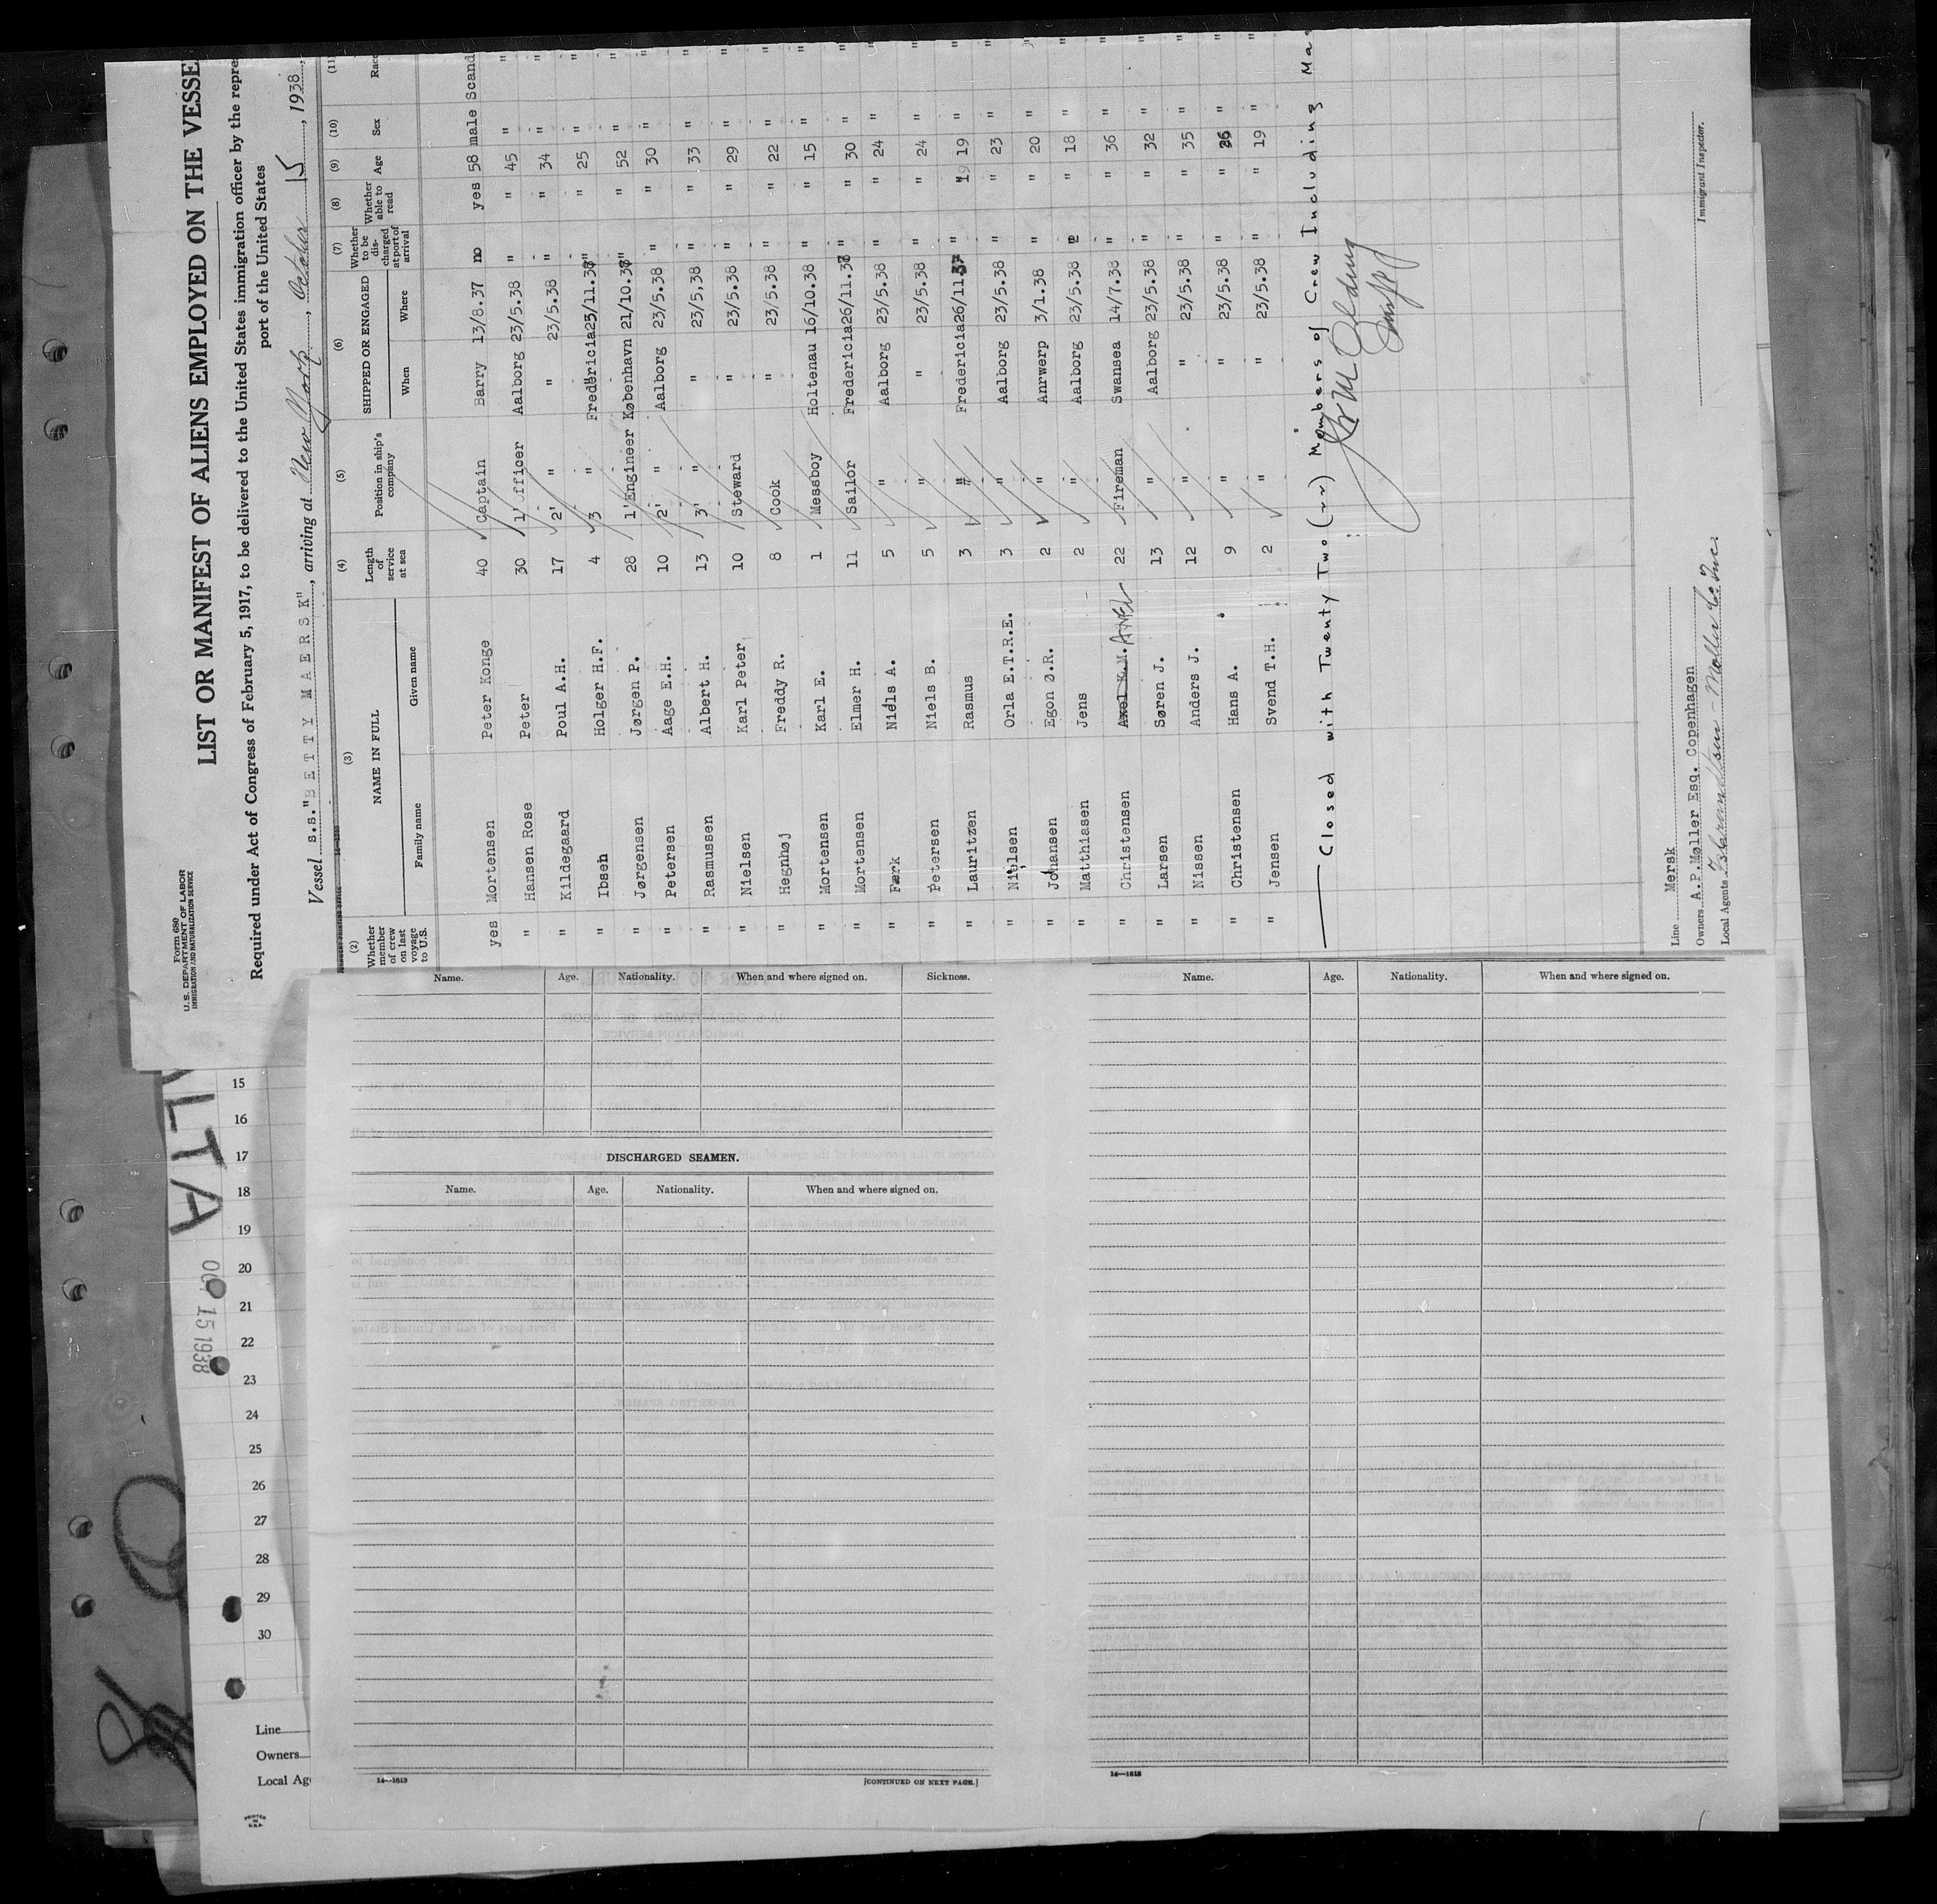 Form 680
U.S. DEPARTMENT OF LABOR
IMMIGRATION AND NATURALIZATION SERVICE
LIST OR MANIFEST OF ALIENS EMPLOYED ON THE VESSE
Required under Act of Congress of February 5, 1917, to be delivered to the United States immigration officer by the repre
port of the United States
Vessel s.s."BETTY MAERSK", arriving at New York, October 15, 1938,
(2) (3) (4) (5) (6) (7) (8) (9) (10) (11)
Whether member of crew on last voyage to U.S. NAME IN FULL Family name Given name Length of service at sea Position in ship's company SHIPPED OR ENGAGED When Where Whether to be discharged at port of arrival Whether able to read Age Sex Race
yes Mortensen Peter Konge 40 Captain Barry 13/8.37 no yes 58 male Scand
" Hansen Rose Peter 30 1' Officer Aalborg 23/5.38 " " 45 " "
" Kildegaard Poul A.H. 17 2' " " 23/5.38 " " 34 " "
" Ibsen Holger H.F. 4 3 " Fredericia 23/11.38 " " 25 " "
" Jørgensen Jørgen P. 28 1' Engineer København 21/10.38 " " 52 " "
" Petersen Aage E.H. 10 2' " Aalborg 23/5.38 " " 30 " "
" Rasmussen Albert H. 13 3' " " 23/5,38 " " 33 " "
" Nielsen Karl Peter 10 Steward " 23/5.38 " " 29 " "
" Hegnhøj Freddy R. 8 Cook " 23/5.38 " " 22 " "
" Mortensen Karl E. 1 Messboy Holtenau 16/10.38 " " 15 " "
" Mortensen Elmer H. 11 Sailor Fredericia 26/11.37 " " 30 " "
" Færk Niels A. 5 " Aalborg 23/5.38 " " 24 " "
" Petersen Niels B. 5 " " 23/5.38 " " 24 " "
" Lauritzen Rasmus 3 " Fredericia 26/11.37 " " 19 " "
" Nielsen Orla E.T.R.E. 3 " Aalborg 23/5.38 " " 23 " "
" Johansen Egon Ø.R. 2 " Anrwerp 3/1.38 " " 20 " "
" Matthiasen Jens 2 " Aalborg 23/5.38 " " 18 " "
" Christensen Axel K.M. AXEL 22 Fireman Swansea 14/7.38 " " 36 " "
" Larsen Søren J. 13 " Aalborg 23/5.38 " " 32 " "
" Nissen Anders J. 12 " " 23/5.38 " " 35 " "
" Christensen Hans A. 9 " " 23/5.38 " " 36 " "
" Jensen Svend T.H. 2 " " 23/5.38 " " 19 " "
Closed with Twenty Two (22) Members of Crew Including Mas
Line Mersk
Owners A.P.Møller Esq. Copenhagen
Local Agents Isbrandtsen - Moller Co Inc.
Immigrant Inspector.
Name. Age. Nationality. When and where signed on. Sickness.
DISCHARGED SEAMEN.
Name. Age. Nationality. When and where signed on.
14—1613
[CONTINUED ON NEXT PAGE.]
Name. Age. Nationality. When and where signed on.
14—1613
ALTA
OCT 15 1938
15
16
17
18
19
20
21
22
23
24
25
26
27
28
29
30
Line
Owners
Local Ag
PRINTED
IN
U.S.A.